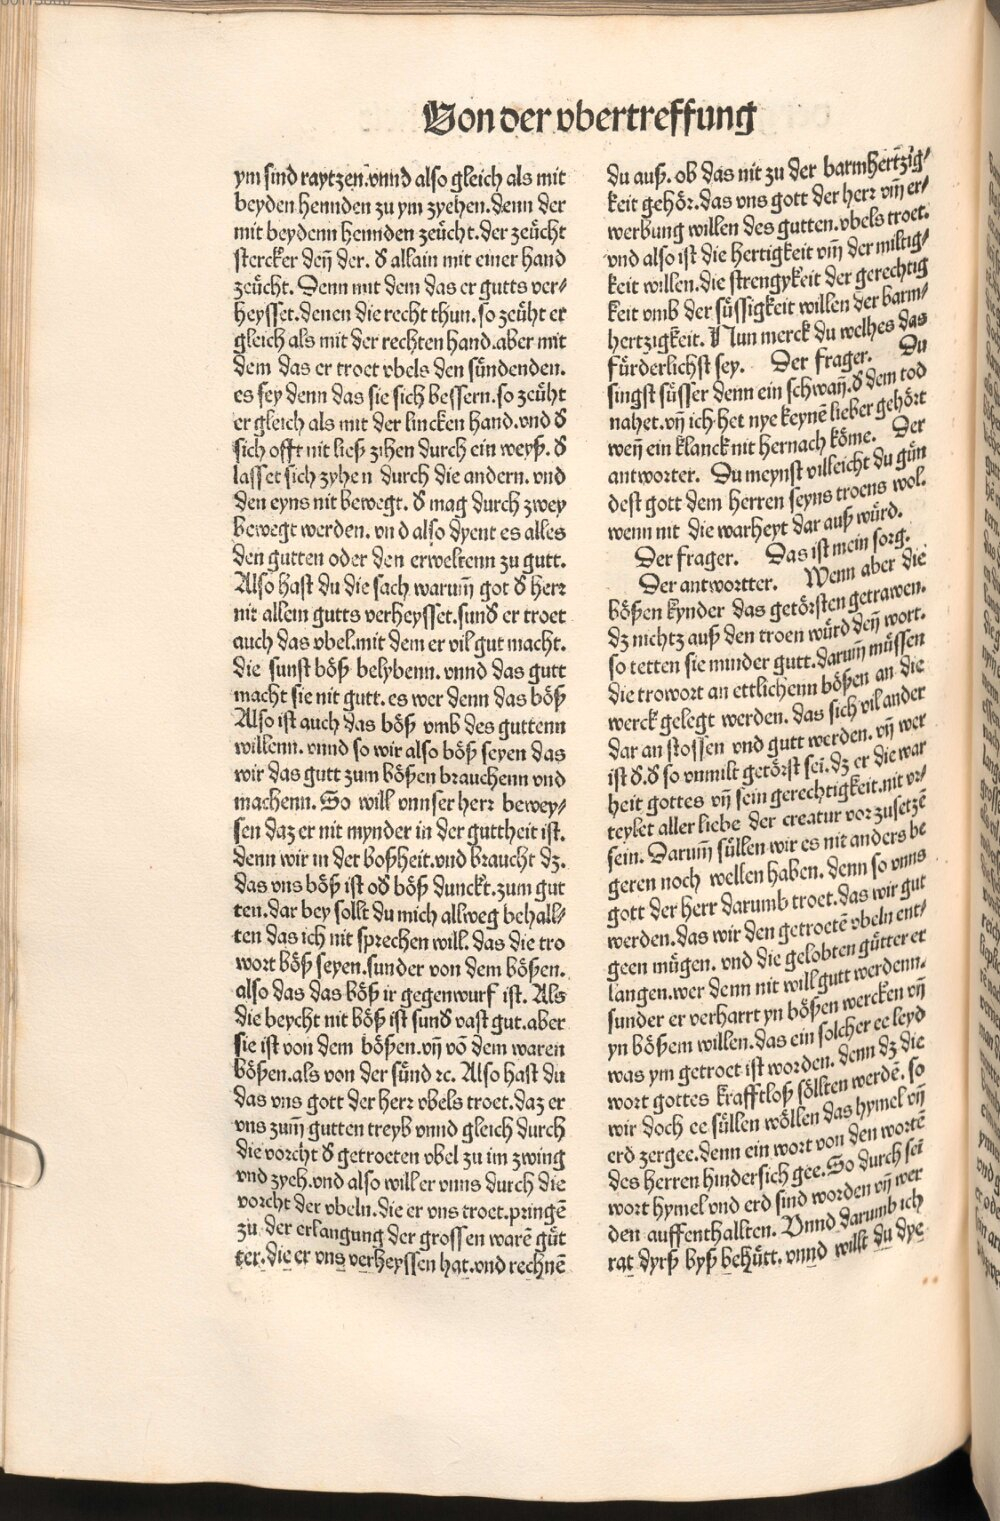 Von der vbertreffung
ym sind raytzen.vnnd also gleich als mit
beyden hennden zu ym zyehen.denn der
mit beydenn hennden zeücht.der zeücht
stercker deñ der. d̕ allain mit einer hand
zeücht. Denn mit dem das er gutts ver⸗
heysset.denen die recht thun.so zeüht er
gleich als mit der rechten hand.aber mit
dem das er troet vbels den sündenden.
es sey denn das sie sich bessern.so zeüht
er gleich als mit der lincken hand.vnd d̕
sich offt nit ließ zihen durch ein weyß. d̕
lasset sich zyhen durch die andern. vnd
den eyns nit bewegt. d̕ mag durch zwey
bewegt werden. vnd also dyent es alles
den gutten oder den erweltenn zu gutt.
Also hast du die sach warum̄ got d̕ herr
nit allein gutts verheysset.sund̕ er troet
auch das vbel.mit dem er vil gut macht.
die sunst böß belybenn. vnnd das gutt
macht sie nit gutt. es wer denn das böß
Also ist auch das böß vmb des guttenn
willenn. vnnd so wir also böß seyen das
wir das gutt zum bößen brauchenn vnd
machenn. So will vnnser herr bewey⸗
sen daz er nit mynder in der guttheit ist.
denn wir in der boßheit.vnd braucht dz.
das vns böß ist od̕ böß dunckt.zum gut
ten.dar bey sollt du mich allweg behall⸗
ten das ich nit sprechen will. das die tro
wort böß seyen.sunder von dem bößen.
also das das böß ir gegenwurf ist. Als
die beycht nit böß ist sund̕ vast gut.aber
sie ist von dem bößen.vñ võ dem waren
bößen.als von der sünd ꝛc. Also hast du
das vns gott der herr vbels troet.daz er
vns zum̄ gutten treyb vnnd gleich durch
die vorcht d̕ getroeten vbel zu im zwing
vnd zyeh.vnd also will er vnns durch die
vorcht der vbeln.die er vns troet.pringē
zu der erlangung der grossen warē güt
ter.die er vns verheyssen hat.vnd rechnē
du auß. ob das nit zu der barmhertzig⸗
keit gehör.das vns gott der herr vm̄ er⸗
werbung willen des gutten.vbels troet.
vnd also ist die hertigkeit vm̄ der miltig⸗
keit willen.die strengykeit der gerechtig
keit vmb der süssigkeit willen der barm⸗
hertzigkeit. Nun merck du welhes das
fürderlichst sey. Der frager. Du
singst süsser denn ein schwañ.d̕ dem tod
nahet.vñ ich het nye keynē lieber gehört
weñ ein klanck nit hernach köme. Der
antworter. Du meynst villeicht du gün
dest gott dem herren seyns troens wol.
wenn mit die warheyt dar auß würd.
Der frager. Das ist mein sorg.
Der antwortter. Wenn aber die
bößen kynder das getörsten getrawen.
dz nichtz auß den troen würd deñ wort.
so tetten sie minder gutt.darum̄ müssen
die trowort an ettlichenn bößen an die
werck gelegt werden. das sich vil ander
dar an stossen vnd gutt werden. vñ wer
ist d̕.d̕ so vnmilt getörst sei.dz er die war
heit gottes vñ sein gerechtigkeit.nit vr⸗
teylet aller liebe der creatur vor zusetzē
sein. Darum̄ süllen wir es nit anders be
geren noch wellen haben. denn so vnns
gott der herr darumb troet.das wir gut
werden.das wir den getroetē vbeln ent⸗
geen mügen. vnd die gelobten gütter er
langen.wer denn nit will gutt werdenn.
sunder er verharrt yn bößen wercken vñ
yn bößem willen.das ein solcher ee leyd
was ym getroet ist worden. denn dz die
wort gottes krafftloß söllten werdē. so
wir doch ee süllen wöllen das hymel vñ
erd zergee.denn ein wort von den wortē
des herren hindersich gee.So durch sei
wort hymel vnd erd sind worden vñ wer
den auffenthallten. Vnnd darumb ich
rat dyrß byß behütt. vnnd willt du dye